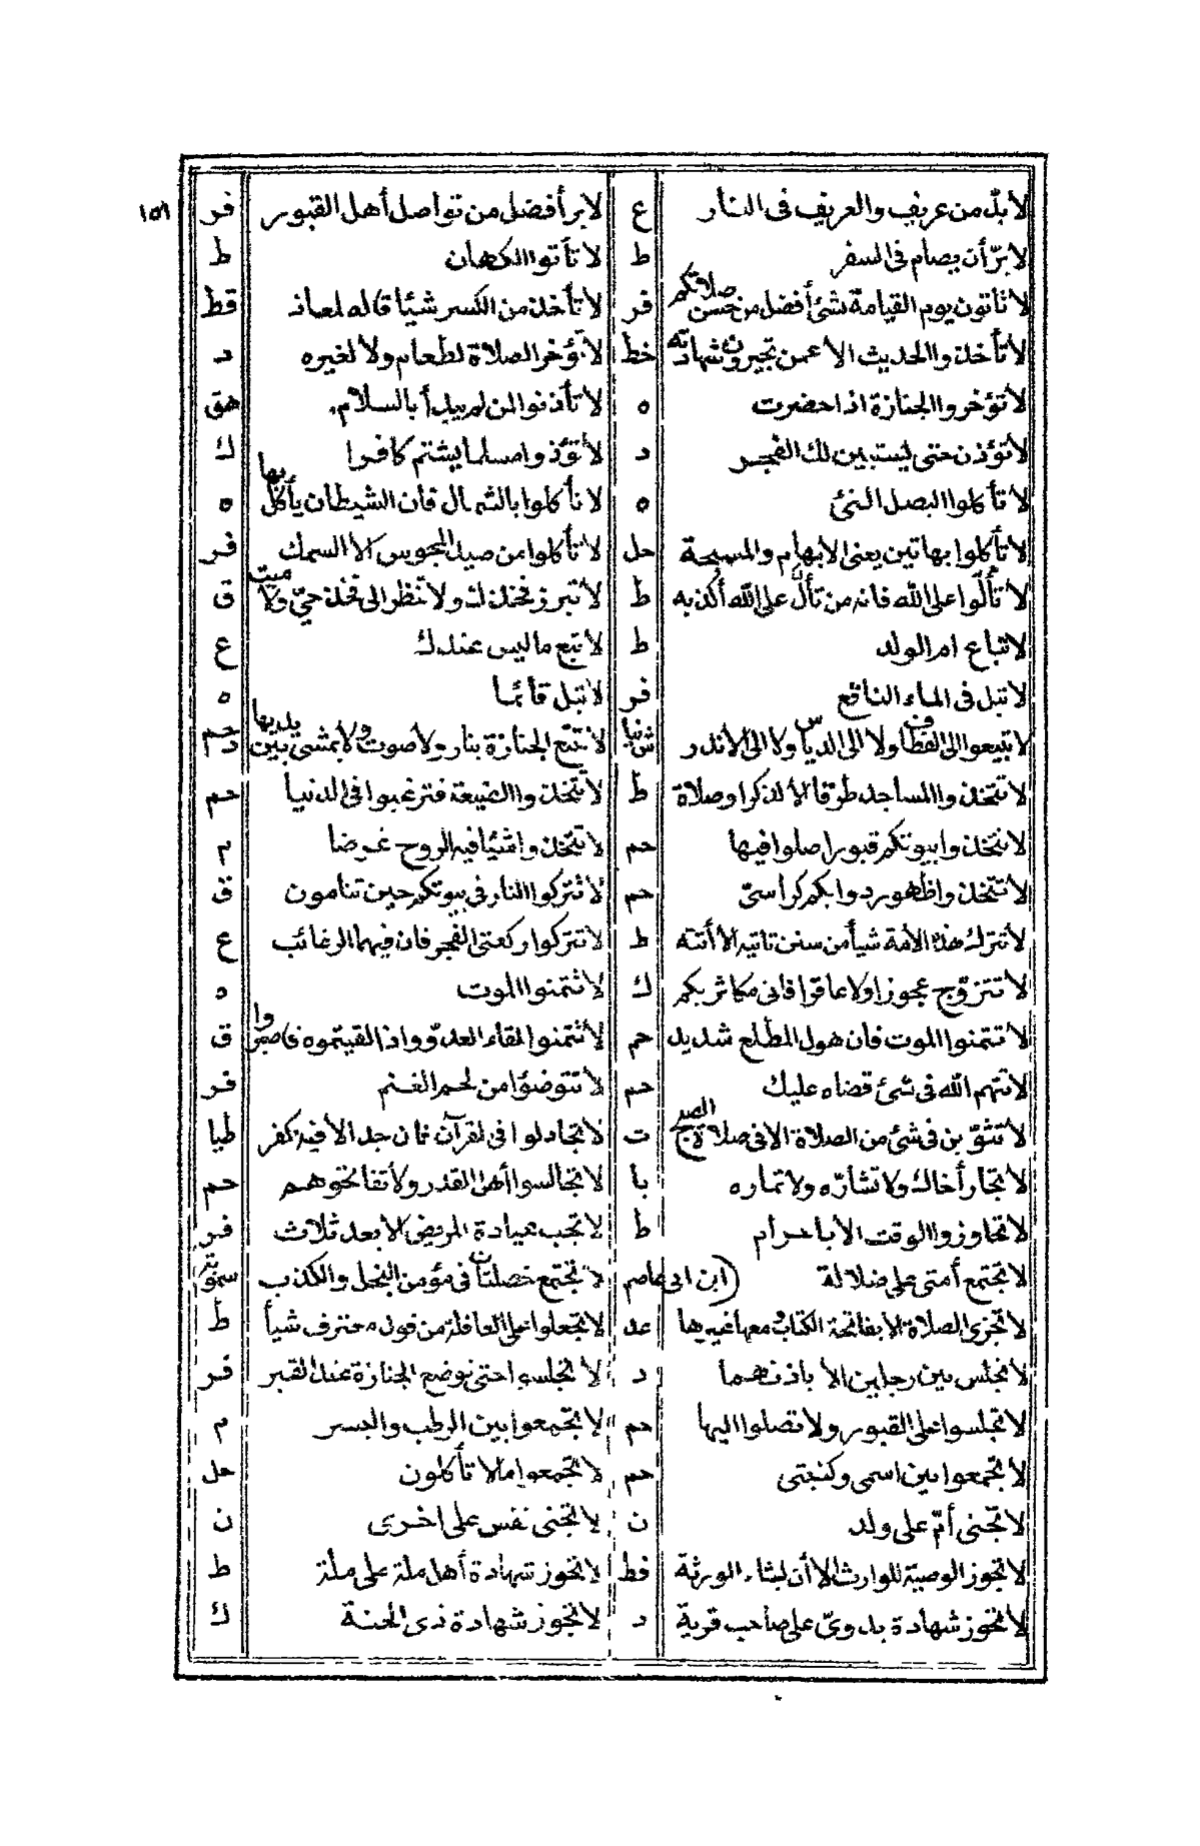 ١٥١
لا بدّ من عريف والعريف فى النار ع لا بر أفضل من تواصل أهل القبور فر
لا برّ أن يصام فى السفر ط لا تأتوا الكهان ط
لا تأتون يوم القيامة بشئ أفضل من حسن صلاتكم فر لا تأخذ من الكسر شيئا قاله لمعاذ قط
لا تأخذوا الحديث الا عمن تجيزون شهادته خط لا تؤخر الصلاة لطعام ولا لغيره د
لا تؤخروا الجنازة اذا حضرت ه لا تأذنوا لمن لم يبدأ بالسلام هق
لا تؤذن حتى يستبين لك الفجر د لا تؤذوا مسلما بشتم كافرا ك
لا تأكلوا البصل النئ ه لا تأكلوا بالشمال فان الشيطان يأكل بها ه
لا تأكلوا بهاتين يعنى الابهام والمسبحة حل لا تأكلوا من صيد المجوس الا السمك فر
لا تألّوا على الله فانه من تألّ على الله أكذبه ط لا تبرز فخذك ولا تنظر الى فخذ حىّ ولا ميت ق
لا تباع ام الولد ط لا تبع ما ليس عندك ع
لا تبل فى الماء الناقع فر لا تبل قائما ه
لا تتبع الجنازة بنار ولا صوت ولا يمشى بين يديها حم د
لا تتخذوا المساجد طرقا الا لذكر او صلاة ط لا تتخذوا الضيعة فترغبوا فى الدنيا حم
لا تتخذوا بيوتكم قبورا صلوا فيها حم لا تتخذوا شيئا فيه الروح غرضا م
لا تتخذوا ظهور دوابكم كراسىّ حم لا تتركوا النار فى بيوتكم حين تنامون ق
لا تترك هذه الامة شيأ من سنن تاتيه الا أتته ط لا تتركوا ركعتى الفجر فان فيهما الرغائب ع
لا تتزوّج عجوزا ولا عاقرا فانى مكاثر بكم ك لا تتمنوا الموت ه
لا تتمنوا الموت فان هول المطلع شديد حم لا تتمنوا لقاء العدوّ واذا لقيتموه فاصبروا ق
لا تتهم الله فى شئ قضاه عليك حم لا تتوضؤا من لحم الغنم فر
لا تثوّبن فى شئ من الصلاة الا فى صلاة الصبح ت لا تجادلوا فى القرآن فان جدالا فيه كفر طيا
لا تجار أخاك ولا تشارّه ولا تماره با لا تجالسوا أهل القدر ولا تفاتحوهم حم
لا تجاوزوا الوقت الا باحرام ط لا تجب عيادة المريض الا بعد ثلاث فر
لا تجتمع أمتى على ضلالة (ابن ابى عاصم لا تجتمع خصلتان فى مؤمن البخل والكذب سمويه
لا تجزى الصلاة الا بفاتحة الكتاب ومعها غيرها عد لا تجعلوا على العاقلة من قول معترف شيأ ط
لا تجلس بين رجلين الا باذنهما د لا تجلسوا حتى توضع الجنازة عند القبر فر
لا تجلسوا على القبور ولا تصلوا اليها حم لا تجمعوا بين الرطب والبسر م
لا تجمعوا بين اسمى وكنيتى حم لا تجمعوا ما لا تأكلون حل
لا تجنى أمّ على ولد ن لا تجنى نفس على اخرى ن
لا تجوز الوصية للوارث الا أن يشاء الورثة قط لا تجوز شهادة أهل ملة على ملة ط
لا تجوز شهادة بدوىّ على صاحب قرية د لا تجوز شهادة ذى الحنة ك